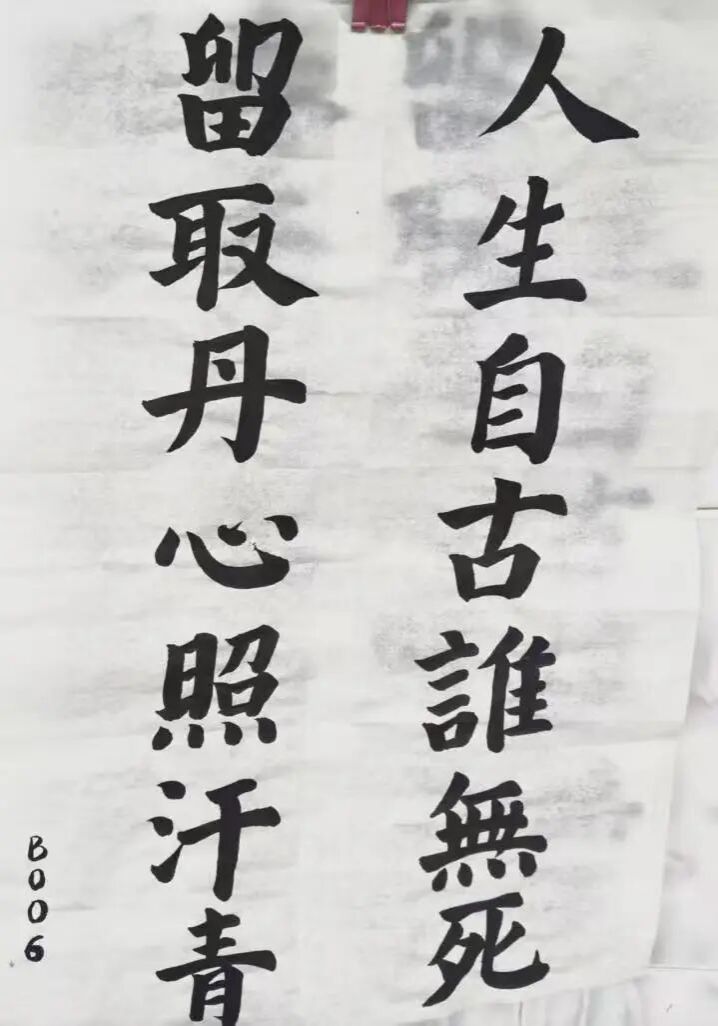 人生自古誰無死
留取丹心照汗青
B006